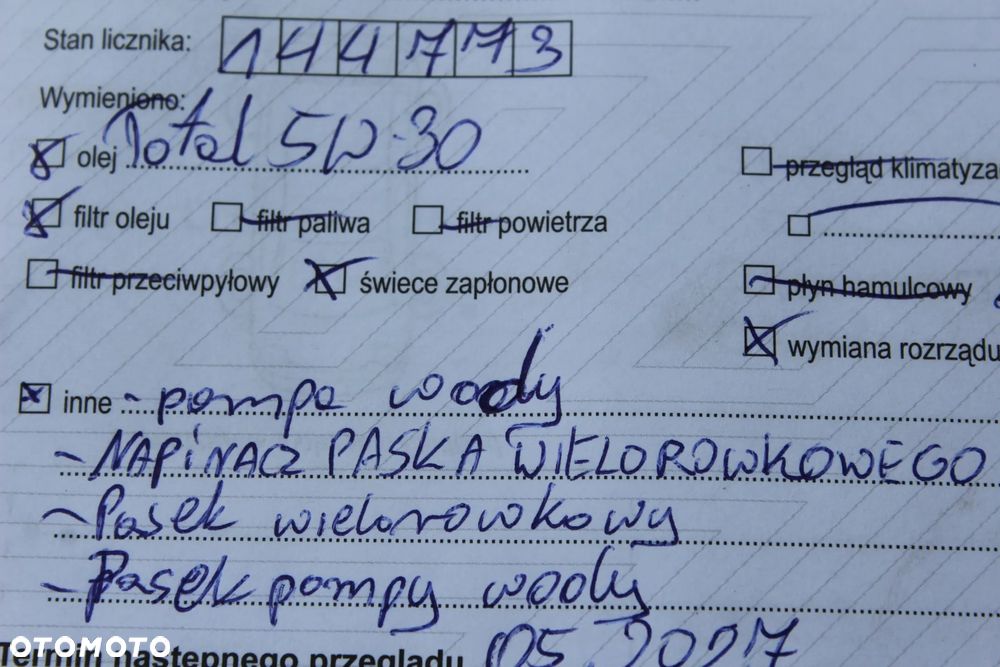 Stan licznika: 144773
Wymieniono:
olej Total 5W-30
przegląd klimatyza
filtr oleju filtr paliwa filtr powietrza
filtr przeciwpyłowy świece zapłonowe
płyn hamulcowy
wymiana rozrządu
inne - pompa wody
- NAPINACZ PASKA WIELOROWKOWEGO
- Pasek wielorowkowy
- Pasek pompy wody
Termin następnego przeglądu 05.2027
OTOMOTO